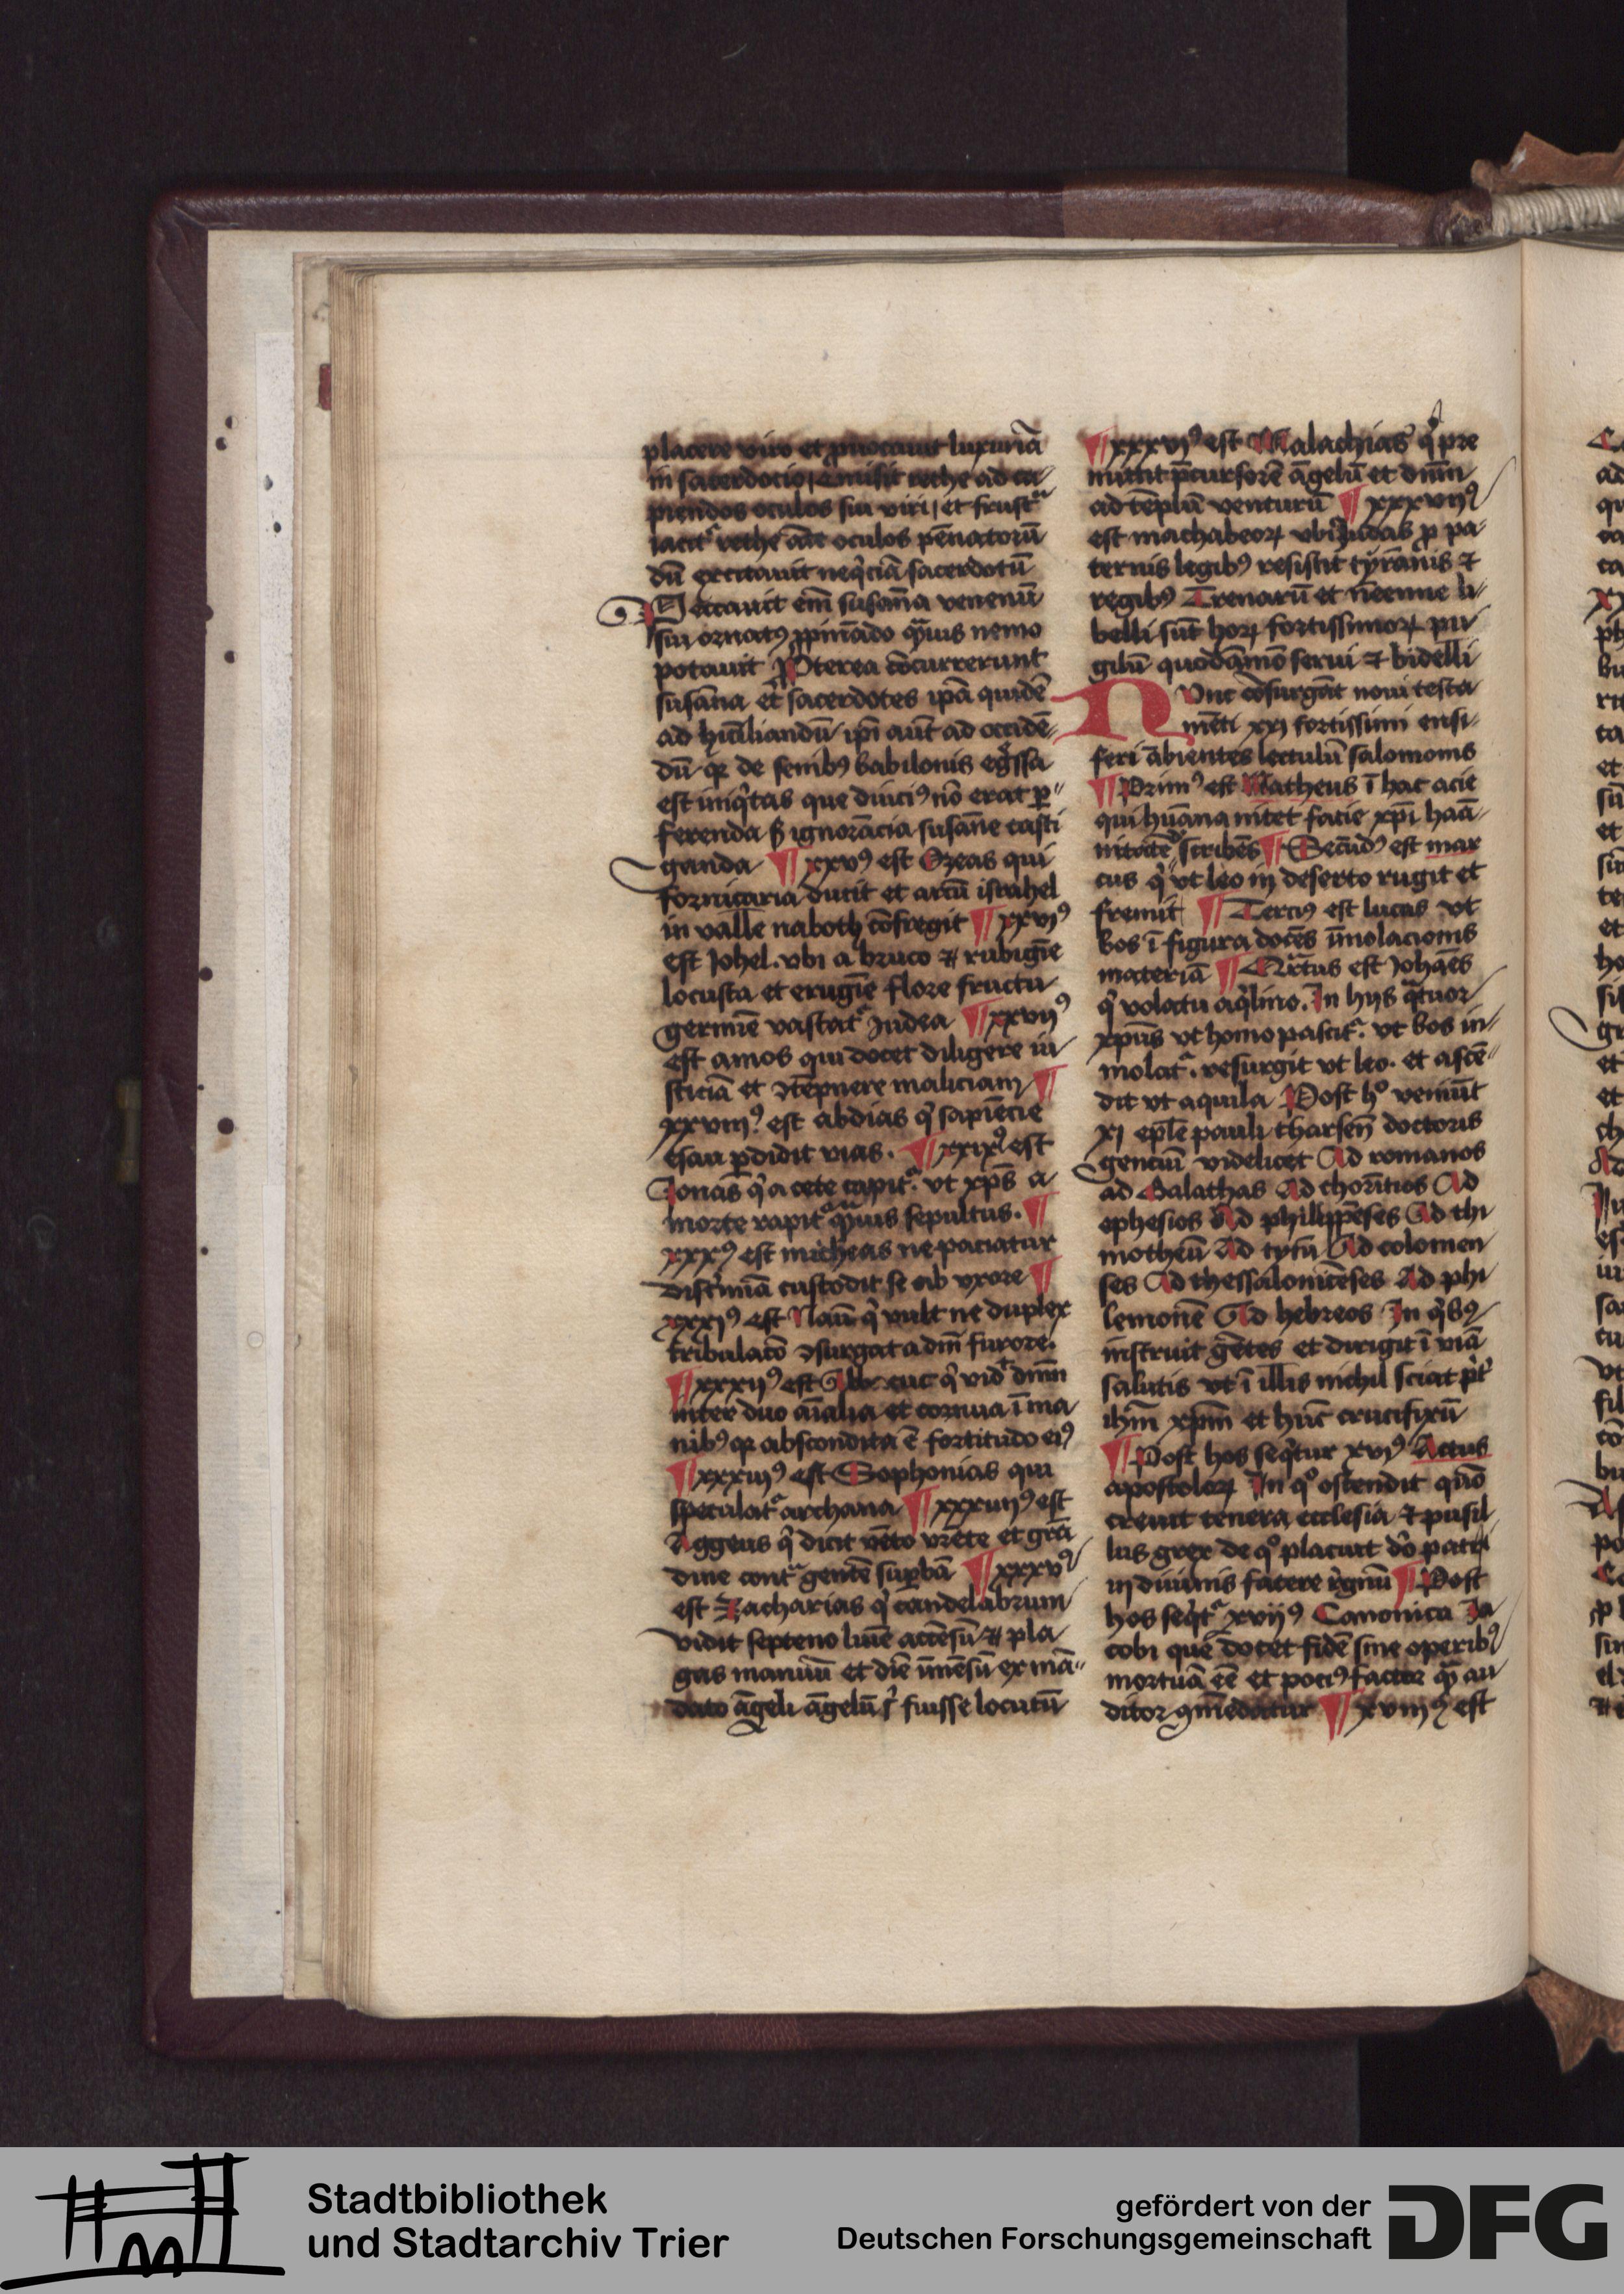 placere viro et ꝓuocauit luxuriā
in sacerdocio / misit rethe ad ca-
piendos oculos sui viri / et frustᵃ
iacitᵃ rethe añ oculos pēnatorū
dū excitauit neqͥciā sacerdotū
Peccauit em̄ susāna venenū
sui ornatꝰ ꝓpināde qᵃuis nemo
potauit Pterea cōcurrerunt
susāna et sacerdotes ip̄a quidē
ad hūiliandū ip̄i aūt ad occidē-
dū qꝛ de senibꝰ babilonis egͤssa
est iniqͥtas que diuciꝰ nō erat ꝑ-
ferenda sꝫ ignorācia susāne casti
ganda ¶ xxvꝰ est Ozeas qui
fornicaria ducit et arcū israhel
in valle naboth cōfregit ¶ xxviꝰ
est Johel. vbi a bruco ⁊ rubigīe
locusta et erugīe flore fructu
germīe vastatᵃ Judea ¶ xxviiꝰ
est amos qui docet diligere iu
sticiā et ꝯtēpnere maliciam ¶
xxviiiꝰ est abdias qͥ sapiēcie
esau ꝑdidit vias. ¶ xxixꝰ est
Jonas qͥ a cete capitᵃ. vt xp̄s a
morte rapitᵃ qᵃuis sepultus. ¶
xxxꝰ est micheas ne paciatur
discͥmīa custodit se ab vxore ¶
xxxiꝰ est Naū qͥ vult ne duplex
tribulacō ꝯsurgat a dn̄i furore.
¶ xxxiiꝰ est Abacuc qͥ vidᵗ dn̄m
inter duo aīalia et cornua ī ma
nibꝰ qꝛ abscondita ē fortitudo eiꝰ
¶ xxxiiiꝰ est Sophonias qui
speculatᵃ archana ¶ xxxiiiiꝰ est
Aggeus qͥ dicit vēto vrēte et grā
dine contᵃ gentē suꝑbā ¶ xxxvꝰ
est Zacharias qͥ candelabrum
vidit septeno lumē accēsū ⁊ pla
gas manuū et diē īmēsū ex mā-
dato āgeli āgelū fuisse locutū
¶ xxxviꝰ est Malachias qͥ pre
mittit p̄cursorē āgelū et dn̄m
ad tēplū venturū ¶ xxxviiꝰ
est machabeoꝝ vbi Judas ꝓ pa-
ternis legibꝰ resistit tyrānis ⁊
regibꝰ Trenarū et neemie li-
belli sūt hoꝝ fortissimoꝝ pu
gilū quodāmō serui ⁊ bidelli
Nunc cōsurgāt noui testa
mēti xxi fortissimi ensi-
feri ābientes lectulū salomonis
¶ Primꝰ est Matheus ī hac acie
qui hūana nitet facie xp̄i hūa-
nitatē scribēs ¶ Secūdꝰ est mar
cus qͥ vt leo in deserto rugit et
fremit ¶ Terciꝰ est lucas vt
bos ī figura docēs īmolacionis
materiā ¶ Qͣrtus est Johāēs
qͥ volatu aqͥlino. In hijs qᵃtuor
xp̄us vt homo pascitᵃ. vt bos im-
molatᵃ. resurgit vt leo. et ascē-
dit vt aquila Post hͦ veniūt
xi ep̄le pauli tharsen̄ doctoris
genciū videlicet Ad romanos
ad Galathas Ad chorītios Ad
ephesios Ad philippēses Ad thi
motheū Ad tytū Ad colomen
ses Ad thessalonicēses Ad phi
lemonē Ad hebreos In qͥbꝰ
instruit gētes et dirigit ī viā
salutis vt ī illis nichil sciat pͥt
ihm̄ xp̄m et hūc crucifixū
¶ Post hos seqͥtur xviꝰ Actus
apostoloꝝ In qͦ ostendit quō
creuit tenera ecclesia ⁊ pusil
lus grex de qͦ placuit dō patri
in diuinis facere rͤgnū ¶ Post
hos seqͥtᵃ xvijꝰ Canonica Ja
cobi que docet fidē sine operibꝰ
mortuā eē et pociꝰ factor qᵃ au
ditor ꝯmēdatur ¶ xviiiꝰ est
Stadtbibliothek
und Stadtarchiv Trier
gefördert von der
Deutschen Forschungsgemeinschaft
DFG